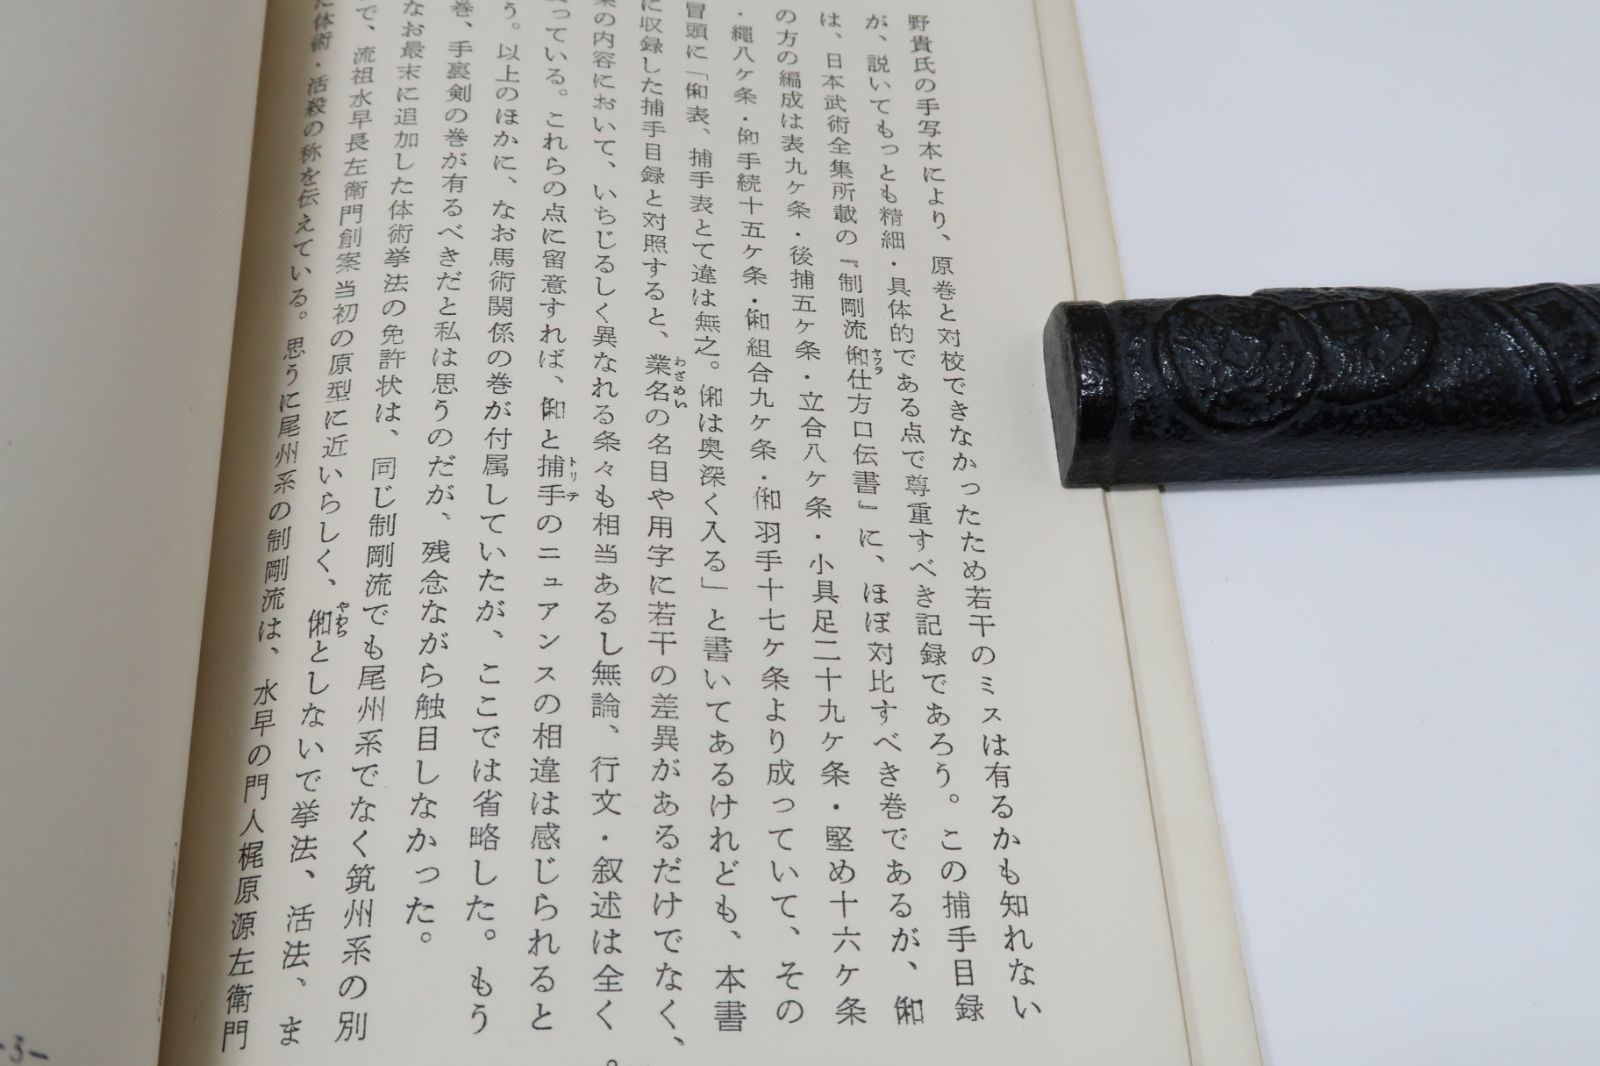 野貴氏の手写本により、原巻と対校できなかったため若干のミスは有るかも知れない
が、説いてもっとも精細・具体的である点で尊重すべき記録であろう。この捕手目録
は、日本武術全集所載の『制剛流俰仕方口伝書』に、ほぼ対比すべき巻であるが、俰
ヤワラ
の方の編成は表九ケ条・後捕五ケ条・立合八ケ条・小具足二十九ケ条・堅め十六ケ条
・縄八ケ条・俰手続十五ケ条・俰組合九ケ条・俰羽手十七ケ条より成っていて、その
冒頭に「俰表、捕手表とて違は無之。俰は奥深く入る」と書いてあるけれども、本書
に収録した捕手目録と対照すると、業名の名目や用字に若干の差異があるだけでなく、
わざめい
業の内容において、いちじるしく異なれる条々も相当あるし無論、行文・叙述は全く
っている。これらの点に留意すれば、俰と捕手のニュアンスの相違は感じられると
トリテ
う。以上のほかに、なお馬術関係の巻が付属していたが、ここでは省略した。もう
巻、手裏剣の巻が有るべきだと私は思うのだが、残念ながら触目しなかった。
なお最末に追加した体術挙法の免許状は、同じ制剛流でも尾州系でなく筑州系の別
で、流祖水早長左衛門創案当初の原型に近いらしく、俰としないで挙法、活法、ま
やわら
た体術・活殺の称を伝えている。思うに尾州系の制剛流は、水早の門人梶原源左衛門
-3-